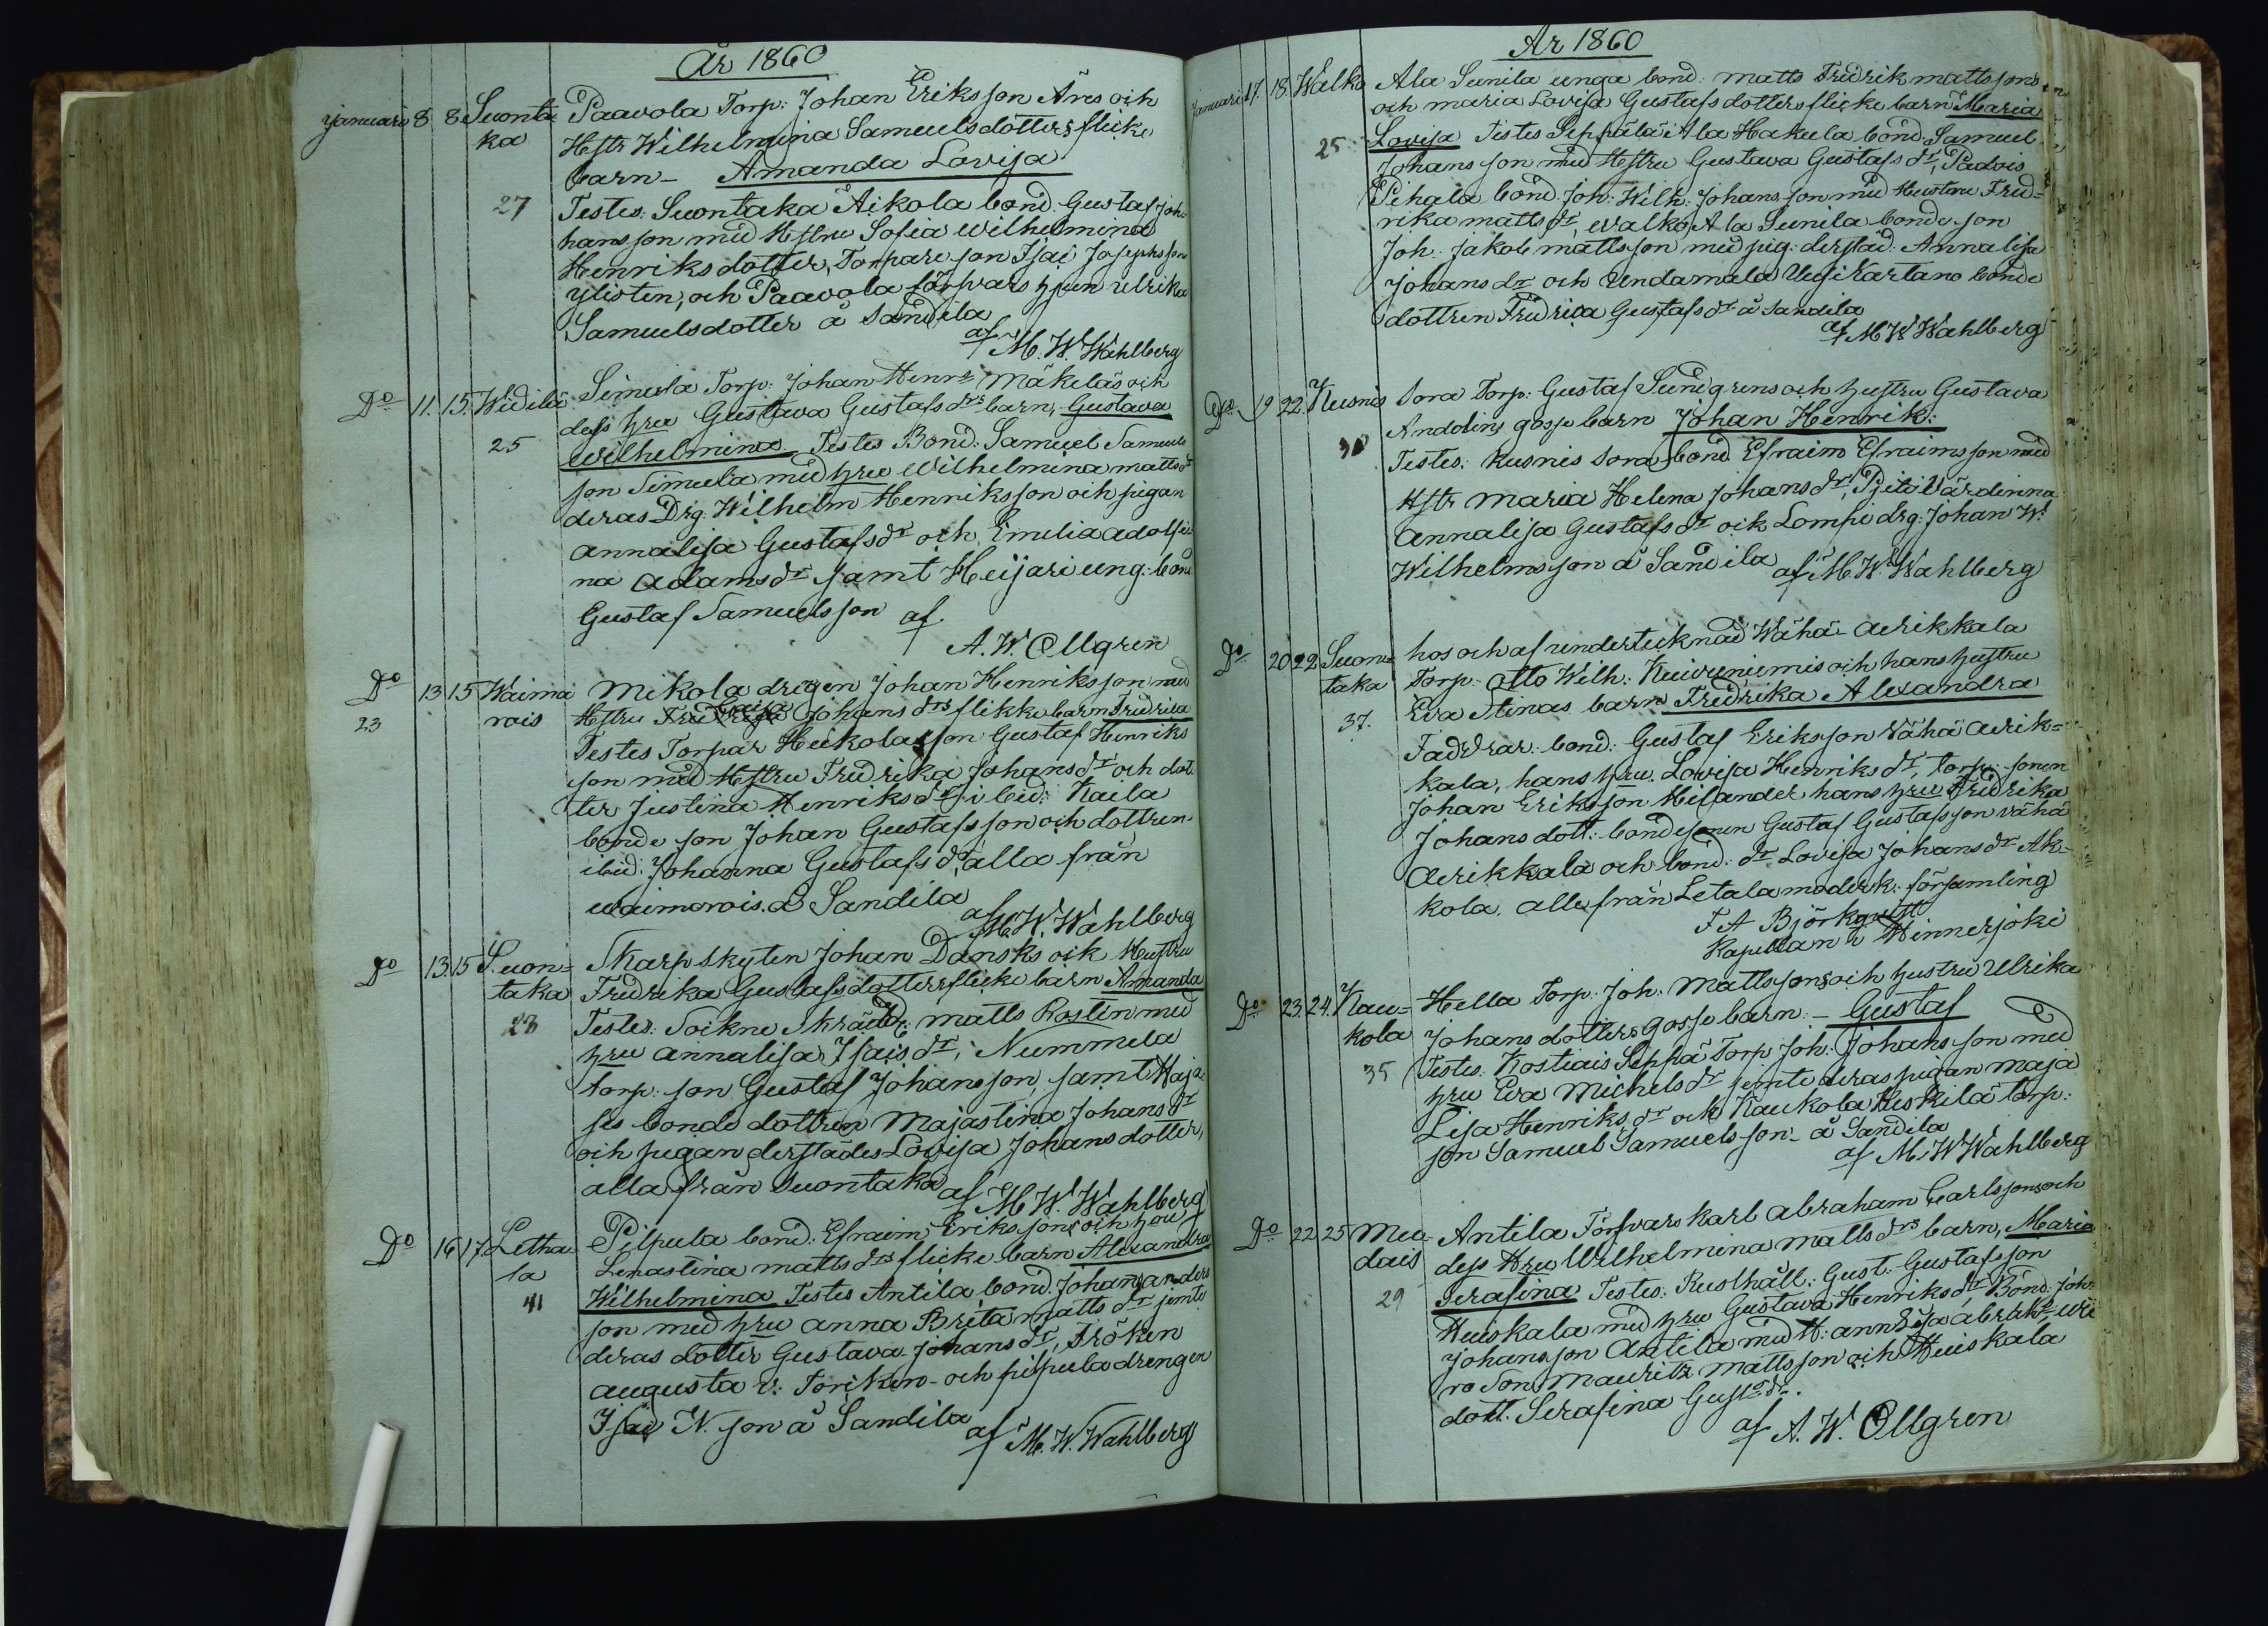 År 1860
Januari 8 8 Suonta Paavola Torp: Johan Eriksson Ånes och
ka Hstr Wilhelmina Samuelsdotters flicke
barn – Amanda Lovisa
27 Testes: Suontaka Äikola bond. Gustaf Jo-
hansson med Hstru Sofia Wilhelmina
Henriksdotter, Torpare son Isai Josephsson
ylisten, och Paavola törpars hun Ulrika
Samuelsdotter å Sandila
af M. W. Wahlberg
Do 11. 15. Widilä Simula Torp: Johan Henr: Mäkeläs och
dess hru Gustava Gustafs drs barn, Gustava
25 Wilhelmina Testes Bond: Samuel Samuels
son Simula med hru Wilhelmina matts dr
deras Drg: Wilhelm Henriksson och pigan
annalisa Gustafsdr och Emilia adolfi-
na adamsdr samt Heijari ung: bond
Gustaf Samuelsson af
A. W. Ollgren
Do 13 15 Waima Mikola drigen Johan Henriksson med
23 rois Hstru Johans drs flikke barn Fridrica
Testes Torpar Heikola son Gustaf Henriks
son med Hstru Fridrika Johans dr och dot
ter Justina Henriks dr, ibid: Kaila
bonde son Johan Gustafsson och dottren
ibid: Johanna Gustafs dr, alla från
waimarois. å Sandila
af M. W. Wahlberg
Do 13. 15 Suon= Skarpskyten Johan Dansks och Hustru
taka Fredrika Gustafsdotters flicke barn Amanda
28 Testes: Soikne Skrädd: matts Rostin med
hru annalisa Isais dr, Nummela
torp: son Gustaf Johansson, samt Haja-
bonde dottren Majastina Johans dr
och pigan derstädes Lovisa Johansdotter,
alla från Suontaka af M. W. Wahlberg
Do 16 17 Letha Pilpula bond: Efraim Erikssons och hru
la Lenastina matts drs flicke barn Alexandra
41 Wilhelmina Testes Antila bond. Johan anders
son med hru anna Brita matts dr jemte
deras dotter Gustava Johans dr, Fröken
augusta v: Torcken och pilpula drengen
Isai N. son å Sandila
af M. W. Wahlberg
År 1860
Januari 17. 18. Walko Ala Sunila unga bond: matts Fredrik mattssons
och maria Lovisa Gustafsdotters flicke barn Maria
25 Lovisa Testes Seppälä Ala Hakula bond: Samuel
Johansson med Hstru Gustava Gustafs dr, Padois
Pihala bond. Joh: Wilh: Johansson med Hustru Fred-
rika matts dr, walko Ala Sunila bonde son
Joh: Jakob mattsson med pig: derstäd: Annalisa
Johans dr och Undamala Uusikartano bonde
dottren Fridrica Gustafs dr å Sandila
af M W Wahlberg
Do 19 22 Kusnis Sora Torp: Gustaf Sundgrens och hustru Gustava
Andolins gosse barn Johan Henrik:
30 Testes: Kusnis Sora bond Efraim Efraimsson med
Hstr Maria Helena Johans dr, Värdinna
Annalisa Gustafs dr och Lompi drg: Johan W:
Wilhelmsson å Sandila af M. W. Wahlberg
Do 20 22 Suon= hos och af undertecknad Wähä-Aerikkala
taka Torp: Otto Wilh: Kuivuniemis och hans hustru
37. Eva Stinas barn Fredrika Alexandra
Faddrar: bond: Gustaf Eriksson Vähä aerik=
kala, hans hru Lovisa Henriks dr, torp: sonen
Johan Eriksson Hisander hans hru Fredrika
Johans dott: bondesonen Gustaf Gustafsson vähä
aerikkala och bond: dr Lovisa Johans dr Ak-
kola. alla från Letala moderk: församling
F A Björkqvist
Kapellan i Hinnerjoki
Do 23. 24. Kau= Hella Torp: Joh: Mattssons och hustru Ulrika
kola Johansdotters gosse barn: – Gustaf
35 Testes. Kostiais Seppä Torp Joh: Johansson med
hru Eva Michels dr jemte deras pigan Maja
Lisa Henriks dr och Kaukola Heikilä torp:
son Samuel Samuelsson – å Sandila
af M. W Wahlberg
Do 22 25 Mu- Antila Törpars karl abraham Carlssons och
dais dess Hru Wilhelmina matts drs barn, Maria
29 Serafina Testes: Rusthåll: Gust: Gustafsson
Huiskala med hru Gustava Henriks dr, Bond: Joh:
Johansson Antila med H:
ro Son Mauritz mattsson och Huiskala
dott. Serafina Gust dr.
af A. W. Ollgren